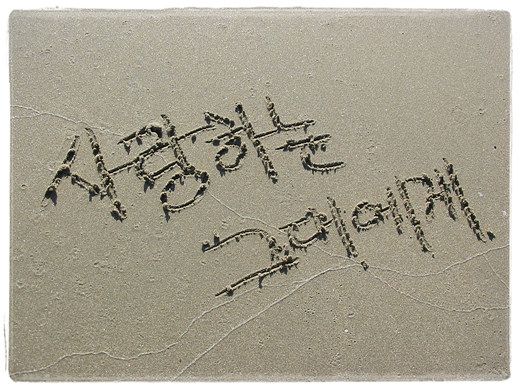 사랑하는
그대에게